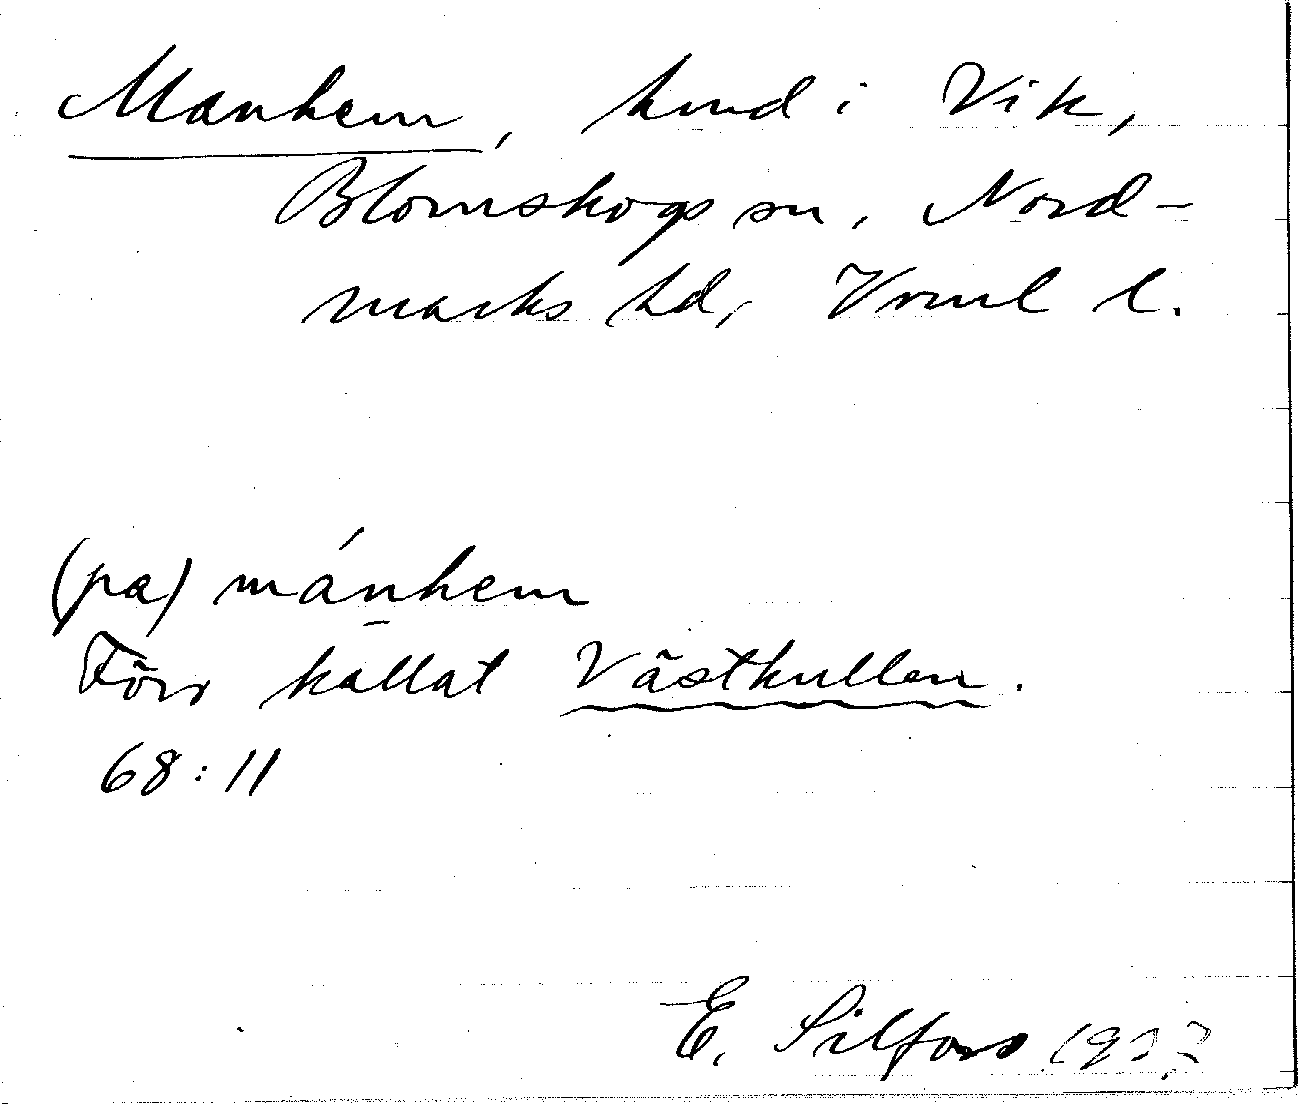 Manhem, hmd i Vik,
Blomskogs sn, Nord-
marks hd, Vrml l.
(pa) mánhem
Förr kallat Västkullen.
68:11
E. Silfors